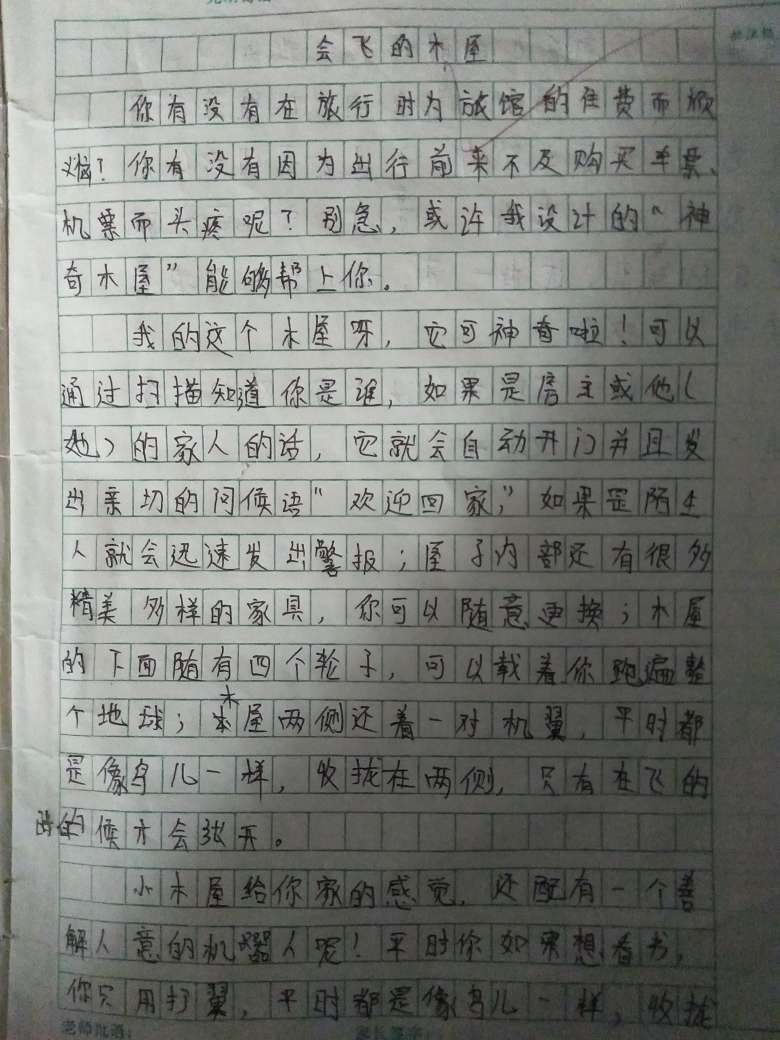 会飞的木屋
你有没有在旅行时为旅馆的住费而烦
恼?你有没有因为出行前来不及购买车票、
机票而头疼呢?别急,或许我设计的“神
奇木屋”能够帮上你。
我的这个木屋呀,它可神奇啦!可以
通过扫描知道你是谁,如果是房主或他(
她)的家人的话,它就会自动开门并且发
出亲切的问候语“欢迎回家,”如果是陌生
人就会迅速发出警报;屋子内部还有很多
精美多样的家具,你可以随意更换;木屋
的下面随有四个轮子,可以载着你跑遍整
个地球;木屋两侧还着一对机翼,平时都
是像鸟儿一样,收拢在两侧,只有在飞的
的候才会张开。
小木屋给你家的感觉,还配有一个善
解人意的机器人呢!平时你如果想看书,
你只用打翼,平时都是像鸟儿一样,收拢
老师批语: